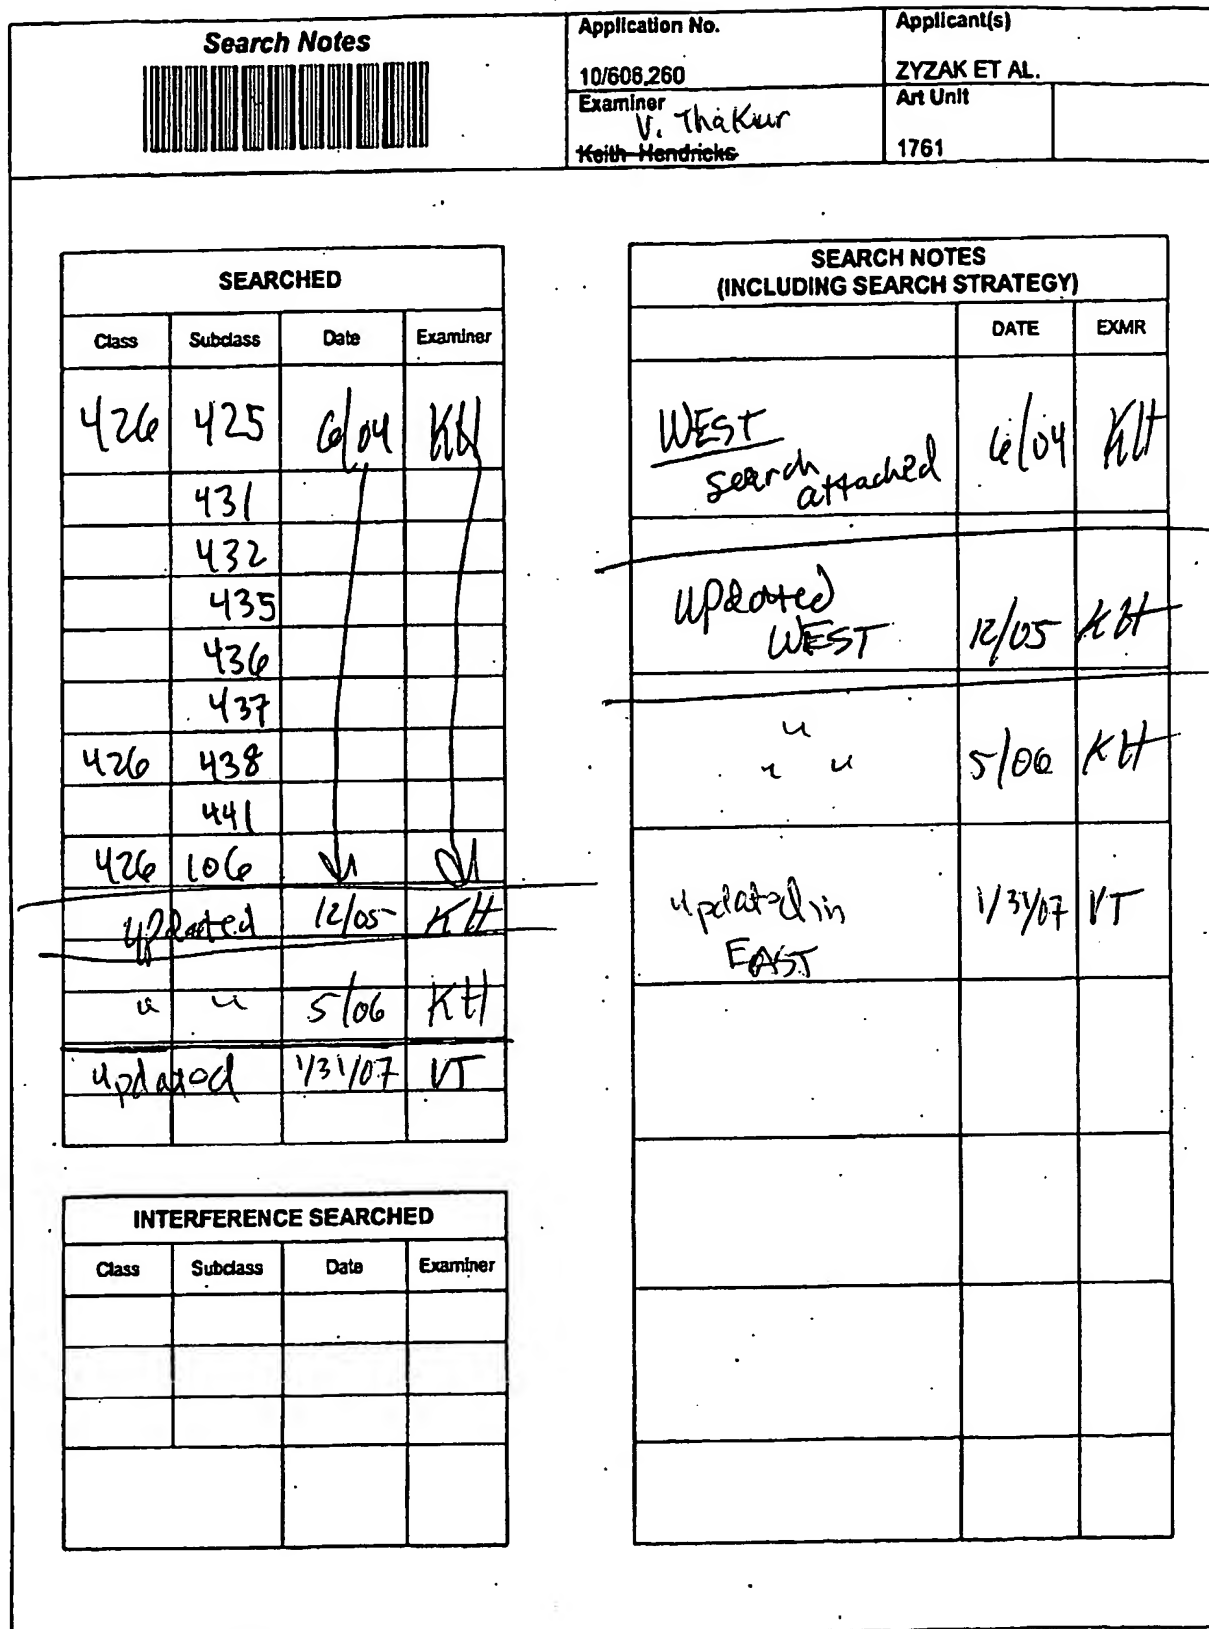 Search Notes
Application No.
10/606,260
Applicant(s)
ZYZAK ET AL.
Examiner
V. Thakur
Keith Hendricks
Art Unit
1761
SEARCHED
Class Subclass Date Examiner
426 425 6/04 KH
431
432
435
436
437
426 438
441
426 106
updated 12/05 KH
" " 5/06 KH
updated 1/31/07 VT
INTERFERENCE SEARCHED
Class Subclass Date Examiner
SEARCH NOTES
(INCLUDING SEARCH STRATEGY)
DATE EXMR
WEST
search
attached 6/04 KH
updated
WEST 12/05 KH
"
" " 5/06 KH
updated in
EAST 1/31/07 VT